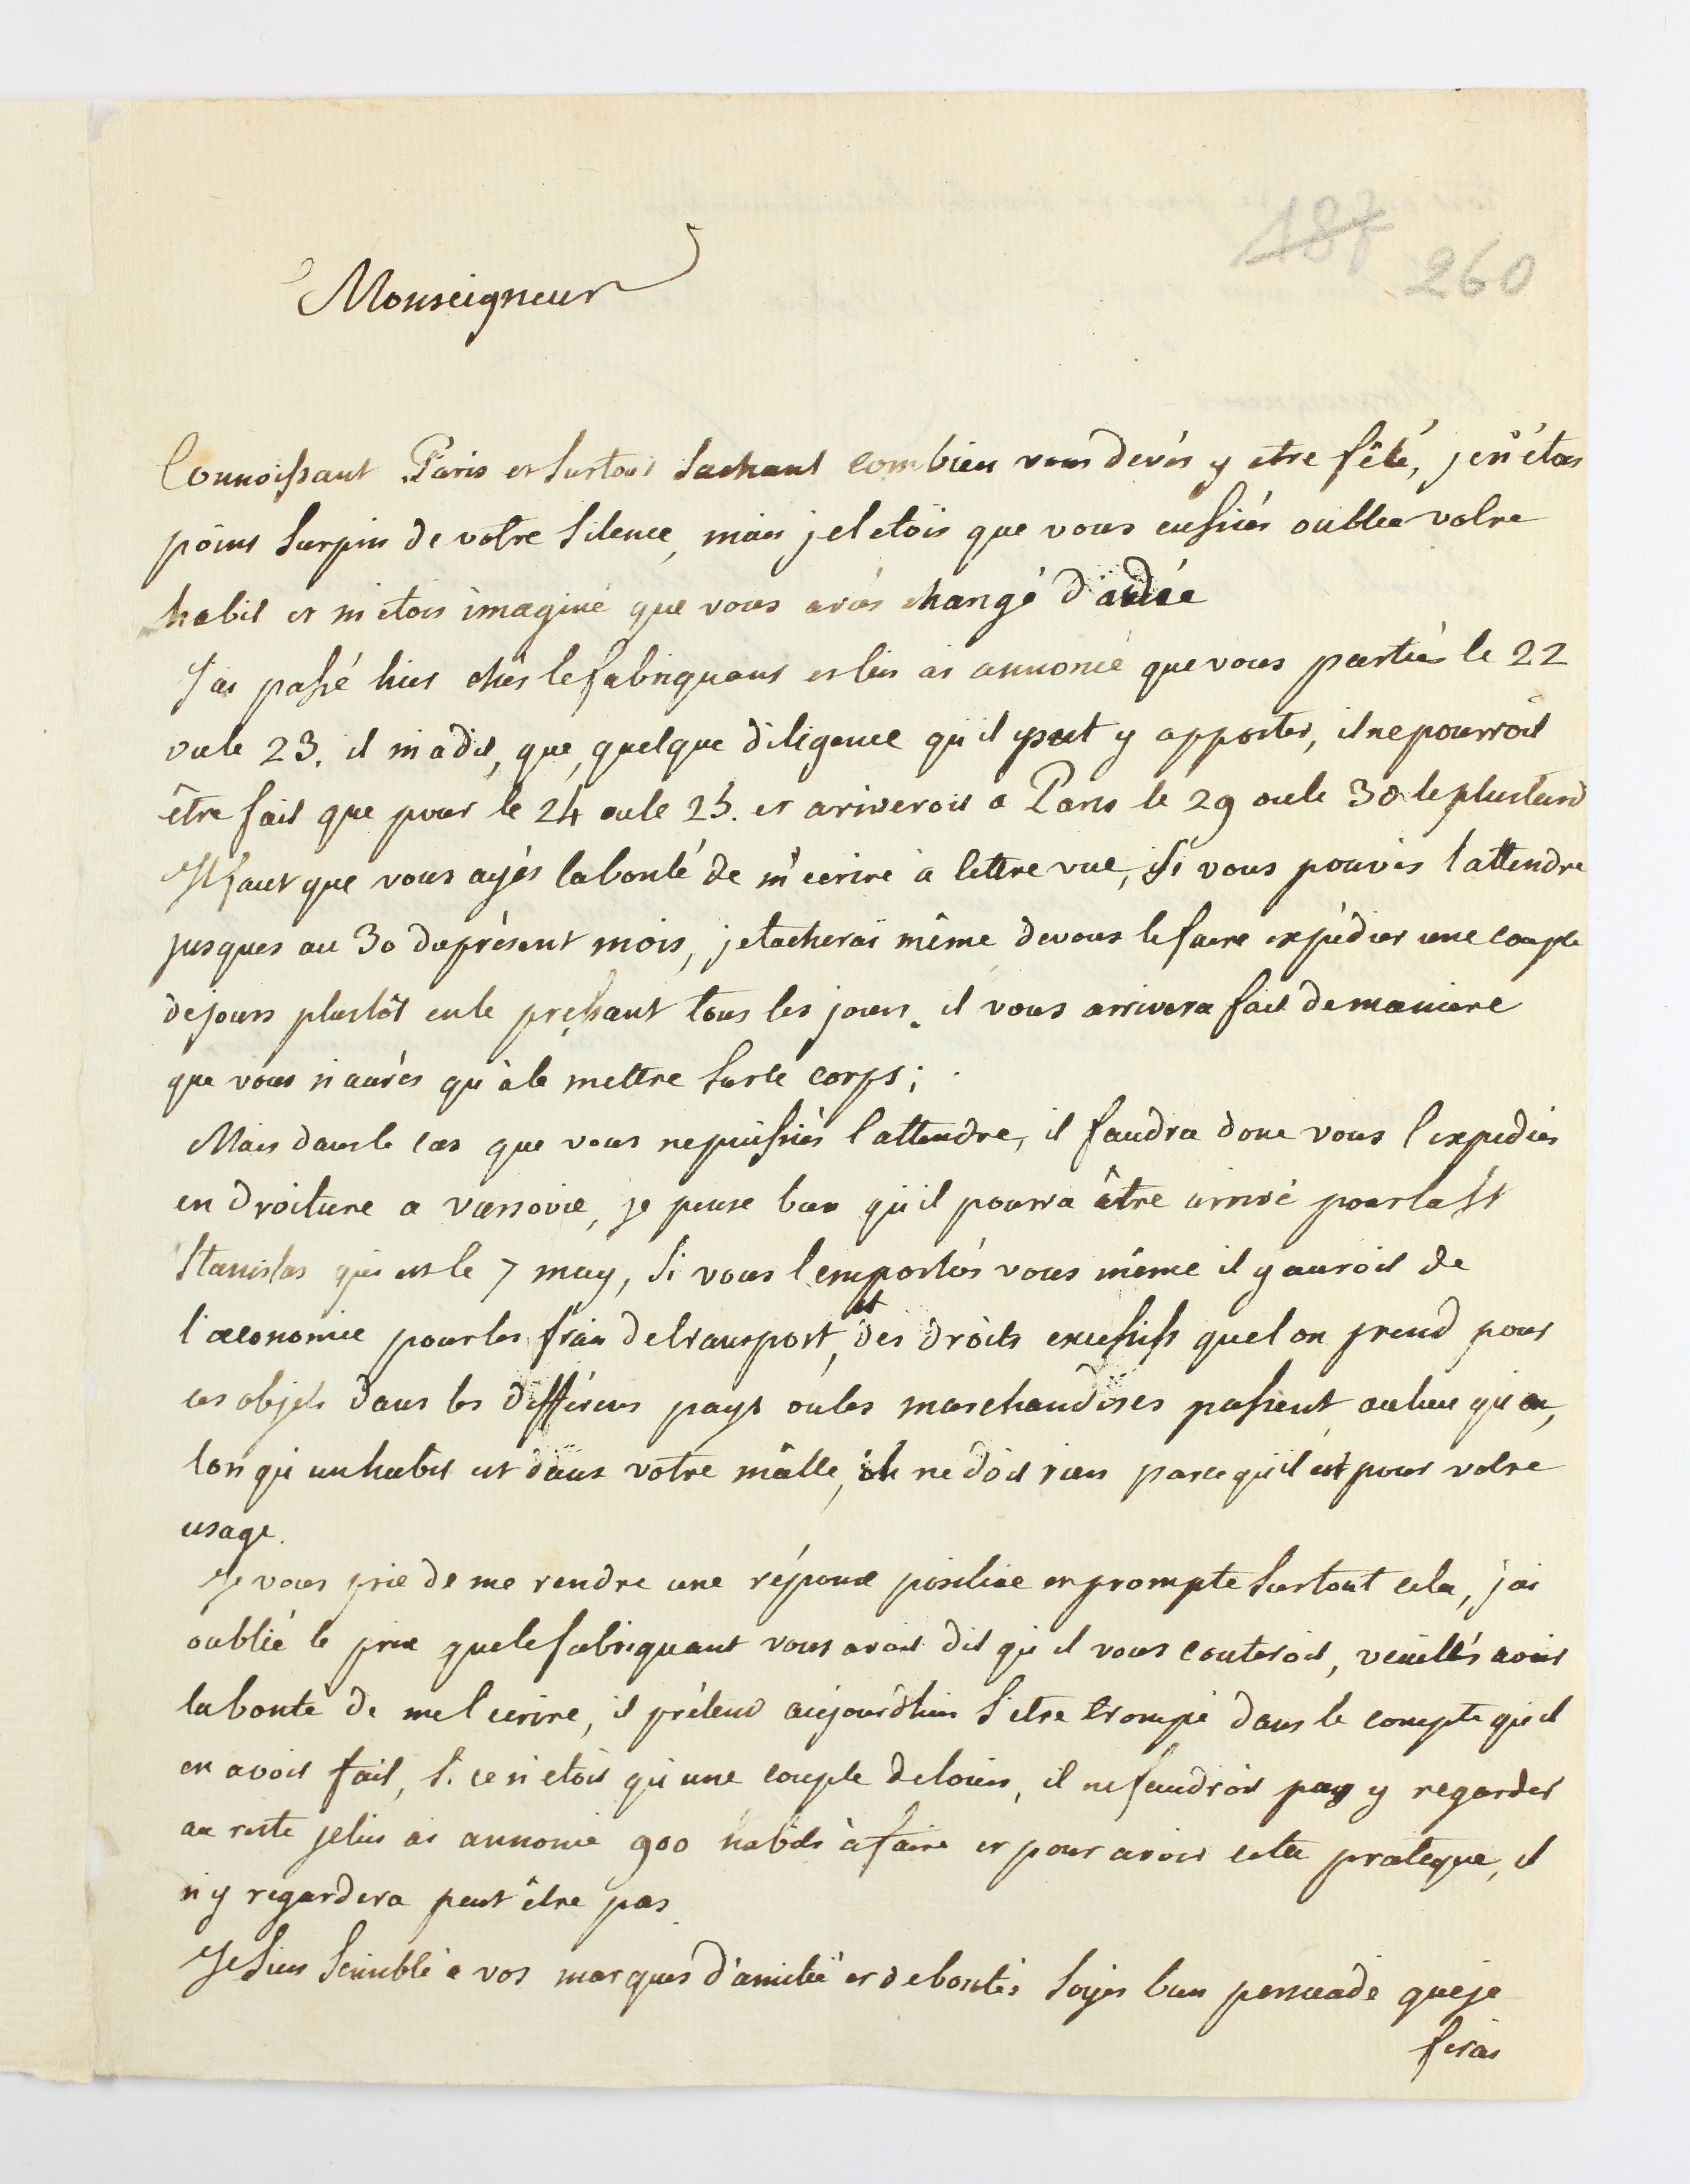 187
260
Monseigneur
Connoissant Paris et surtout sachant combien vous devés y etre fêté, je n'étois
point surpris de votre silence, mais je l'etois que vous eussiés oublié votre
habit et m'etois imaginé que vous aviés changé d'aidée
J'ai passé hier chés le fabriquant et lui ai annoncé que vous partiés le 22
oule 23. il m'a dit, que, quelque diligence qu'il put y apporter, il ne pourroit
être fait que pour le 24 oule 25. et ariveroit a Paris le 29 oule 30 le plustard
Il faut que vous ayés la bonté de m'ecrire à lettre vue, si vous pouvés l'attendre
jusques au 30 du présent mois, je tacherai même de vous le faire expédier une couple
de jours plustôt en le pressant tous les jours. il vous arrivera fait de maniere
que vous n'aurés qu'à le mettre sur le corps;
Mais dans le cas que vous ne puissiés l'attendre, il faudra donc vous l'expedier
en droiture a varsovie, je pense bien qu'il pourra être arrivé pour la St
Stanislas qui est le 7 may, si vous l'emportés vous même il y auroit de
l'oeconomie pour les frais de transport, et des droits excessifs que l'on prend pour
ces objets dans les différens pays où les marchandises passent au lieu qu'en,
lors qu'un habit est dans votre mâlle, il ne doit rien parce qu'il est pour votre
usage.
Je vous prie de me rendre une réponse positive et prompte sur tout cela, j'ai
oublié le prix que le fabriquant vous avoit dit qu'il vous couteroit, veuillés avoir
la bonté de me l'ecrire, il prétend aujourd'hui s'etre trompé dans le compte qu'il
en avoit fait, si ce n'etoit qu'une couple de louis, il ne faudroit pas y regarder
au reste je lui ai annoncé 900 habits à faire et pour avoir cette pratique, il
n'y regardera peut être pas.
Je suis sensible a vos marques d'amitié et de bontés soyés bien persuadé que je
ferai